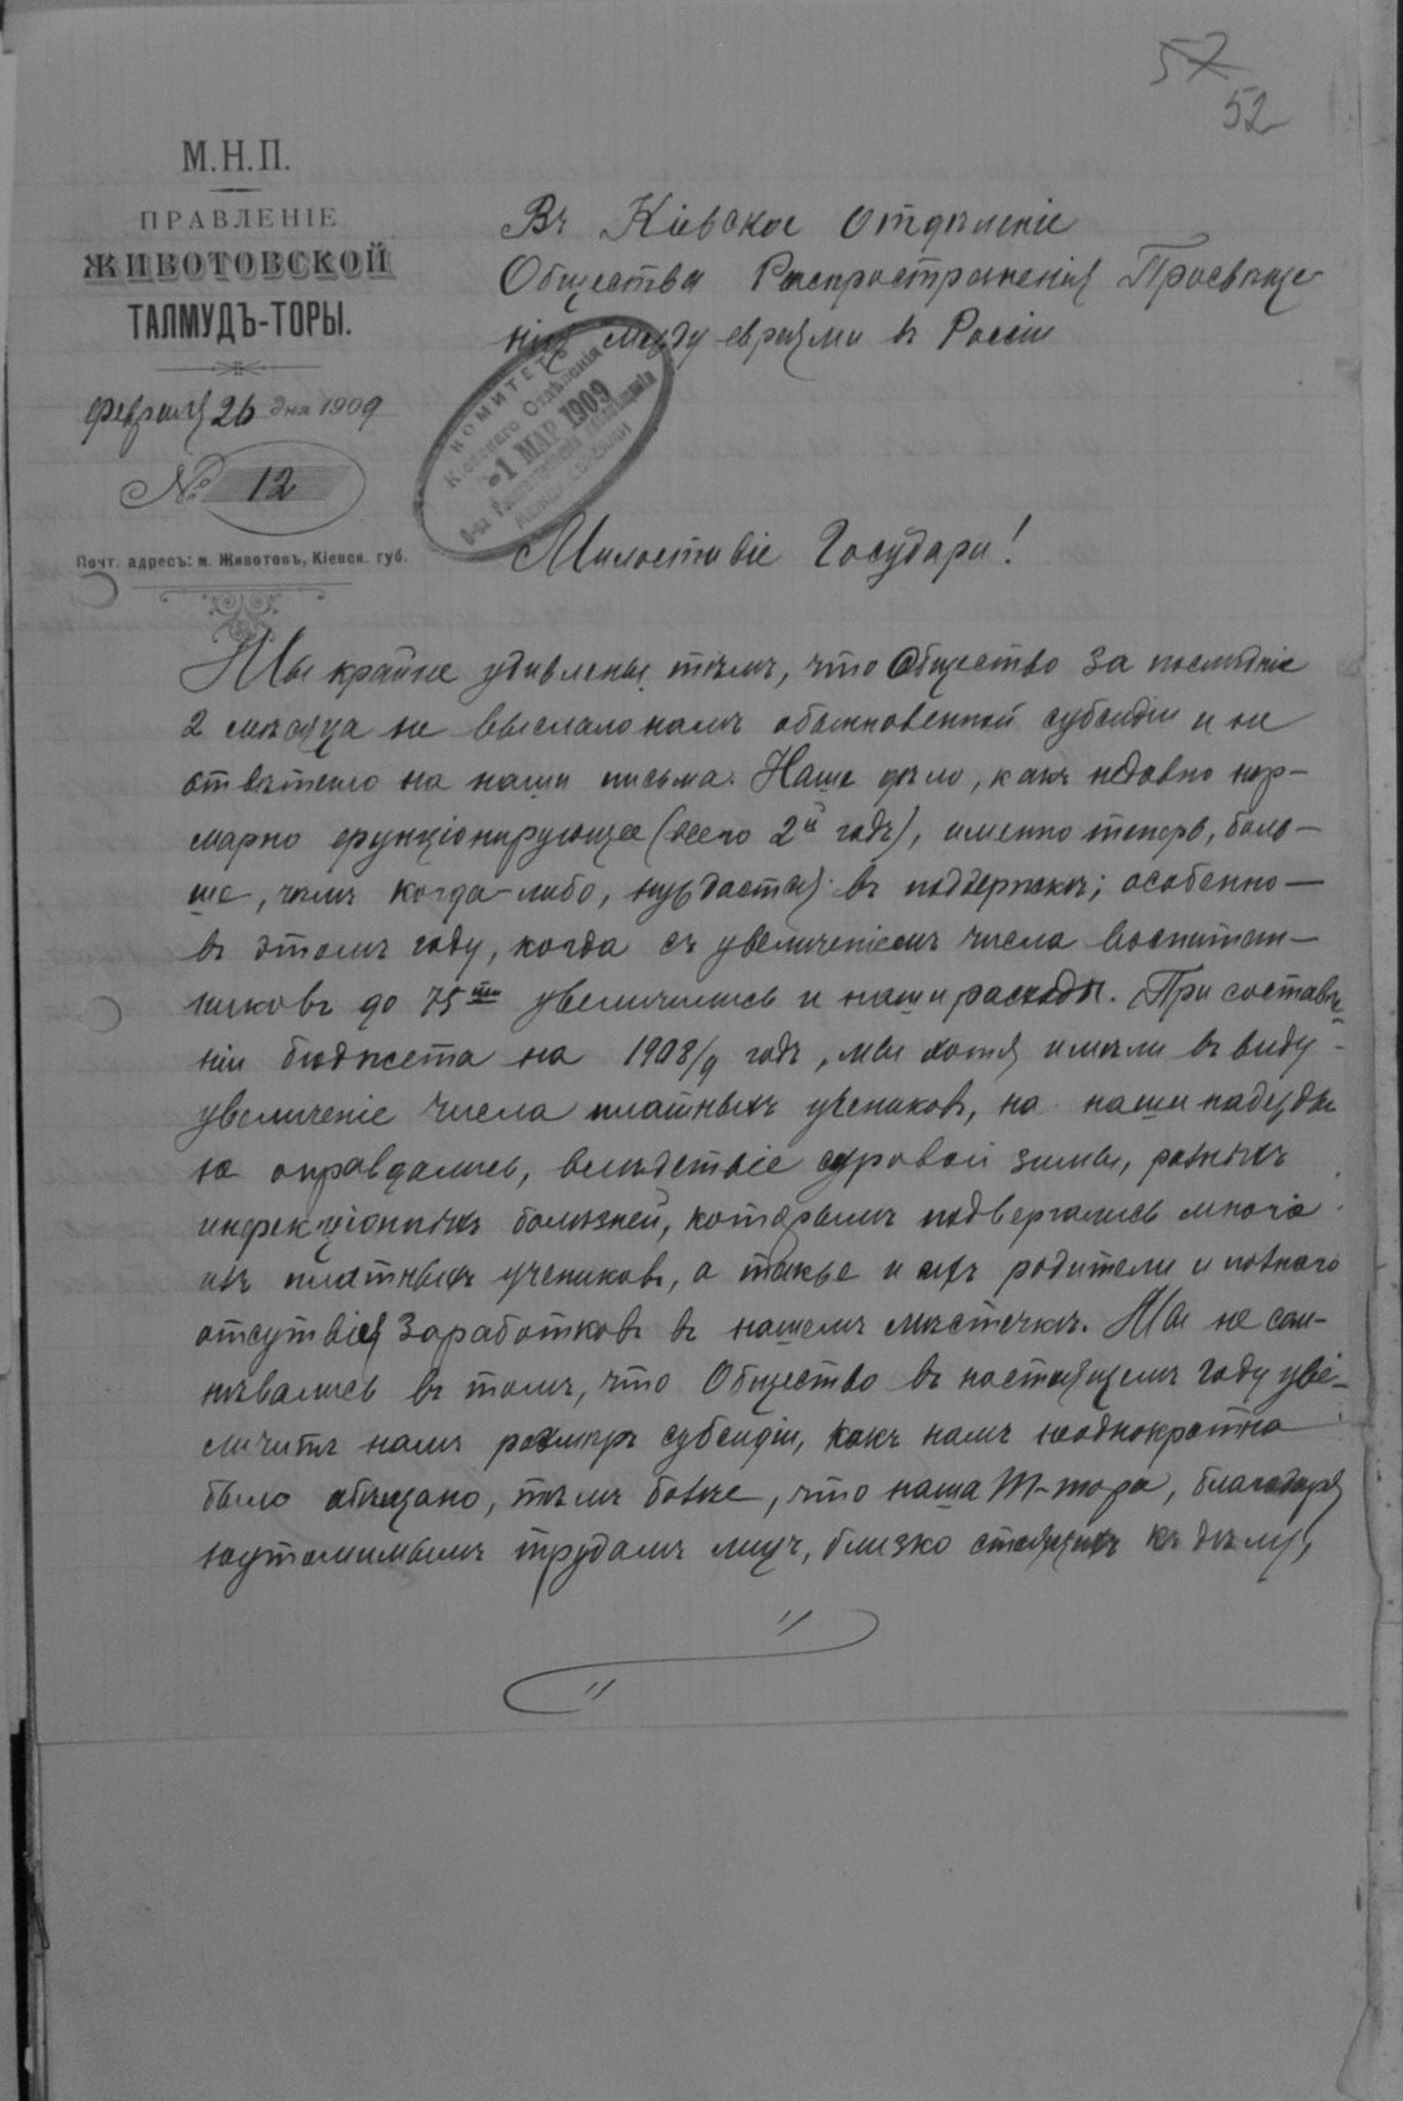 57
52
М.Н.П.
ПРАВЛЕНІЕ
ЖИВОТОВСКОЙ
ТАЛМУДЪ-ТОРЫ.
Февраля 26 дня 1909
№ 12
Почт. адресъ: м. Животовъ, Кіевск. губ.
Въ Кіевское Отдѣленіе
Общества Распространенія Просвѣще-
нія между евреями въ Россіи
КОМИТЕТЪ
Кіевскаго Отдѣленія
-1 МАР 1909
О-ва Просвѣщенія
между евреями
Милостивіе Государи!
Мы крайне удивлены тѣмъ, что Общество за послѣдніе
2 мѣсяца не выслало намъ обыкновенной субсидіи и не
отвѣтило на наши письма. Наше дѣло, какъ недавно нор-
марно функціонирующее (всего 2й годъ), именно теперь, боль-
ше, чѣмъ когда-либо, нуждается въ поддержкѣ; особенно —
въ этомъ году, когда съ увеличеніемъ числа воспитан-
никовъ до 75ти увеличились и наши расходы. При составле-
ніи бюджета на 1908/9 годъ, мы хотя имѣли въ виду
увеличеніе числа платныхъ учениковъ, но наши надежды
не оправдались, вслѣдствіе суровой зимы, разныхъ
инфекціонныхъ болѣзней, которымъ подвергались многіе
изъ платныхъ учениковъ, а также и ихъ родители и полнаго
отсутвія заработковъ въ нашемъ мѣстечкѣ. Мы не сом-
нѣвались въ томъ, что Общество въ настоящемъ году уве-
личитъ намъ размѣръ субсидіи, какъ намъ неоднократно
было обѣщано, тѣмъ болѣе, что наша Т-тора, благодаря
неутомимымъ трудамъ лицъ, близко стоящихъ къ дѣлу,